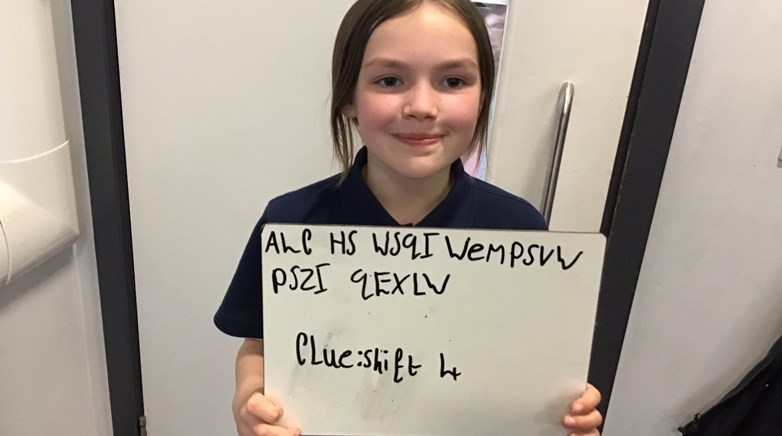 ALC HS WSQI WeMPSVW
PSZI QEXLW
CLue:shift 4